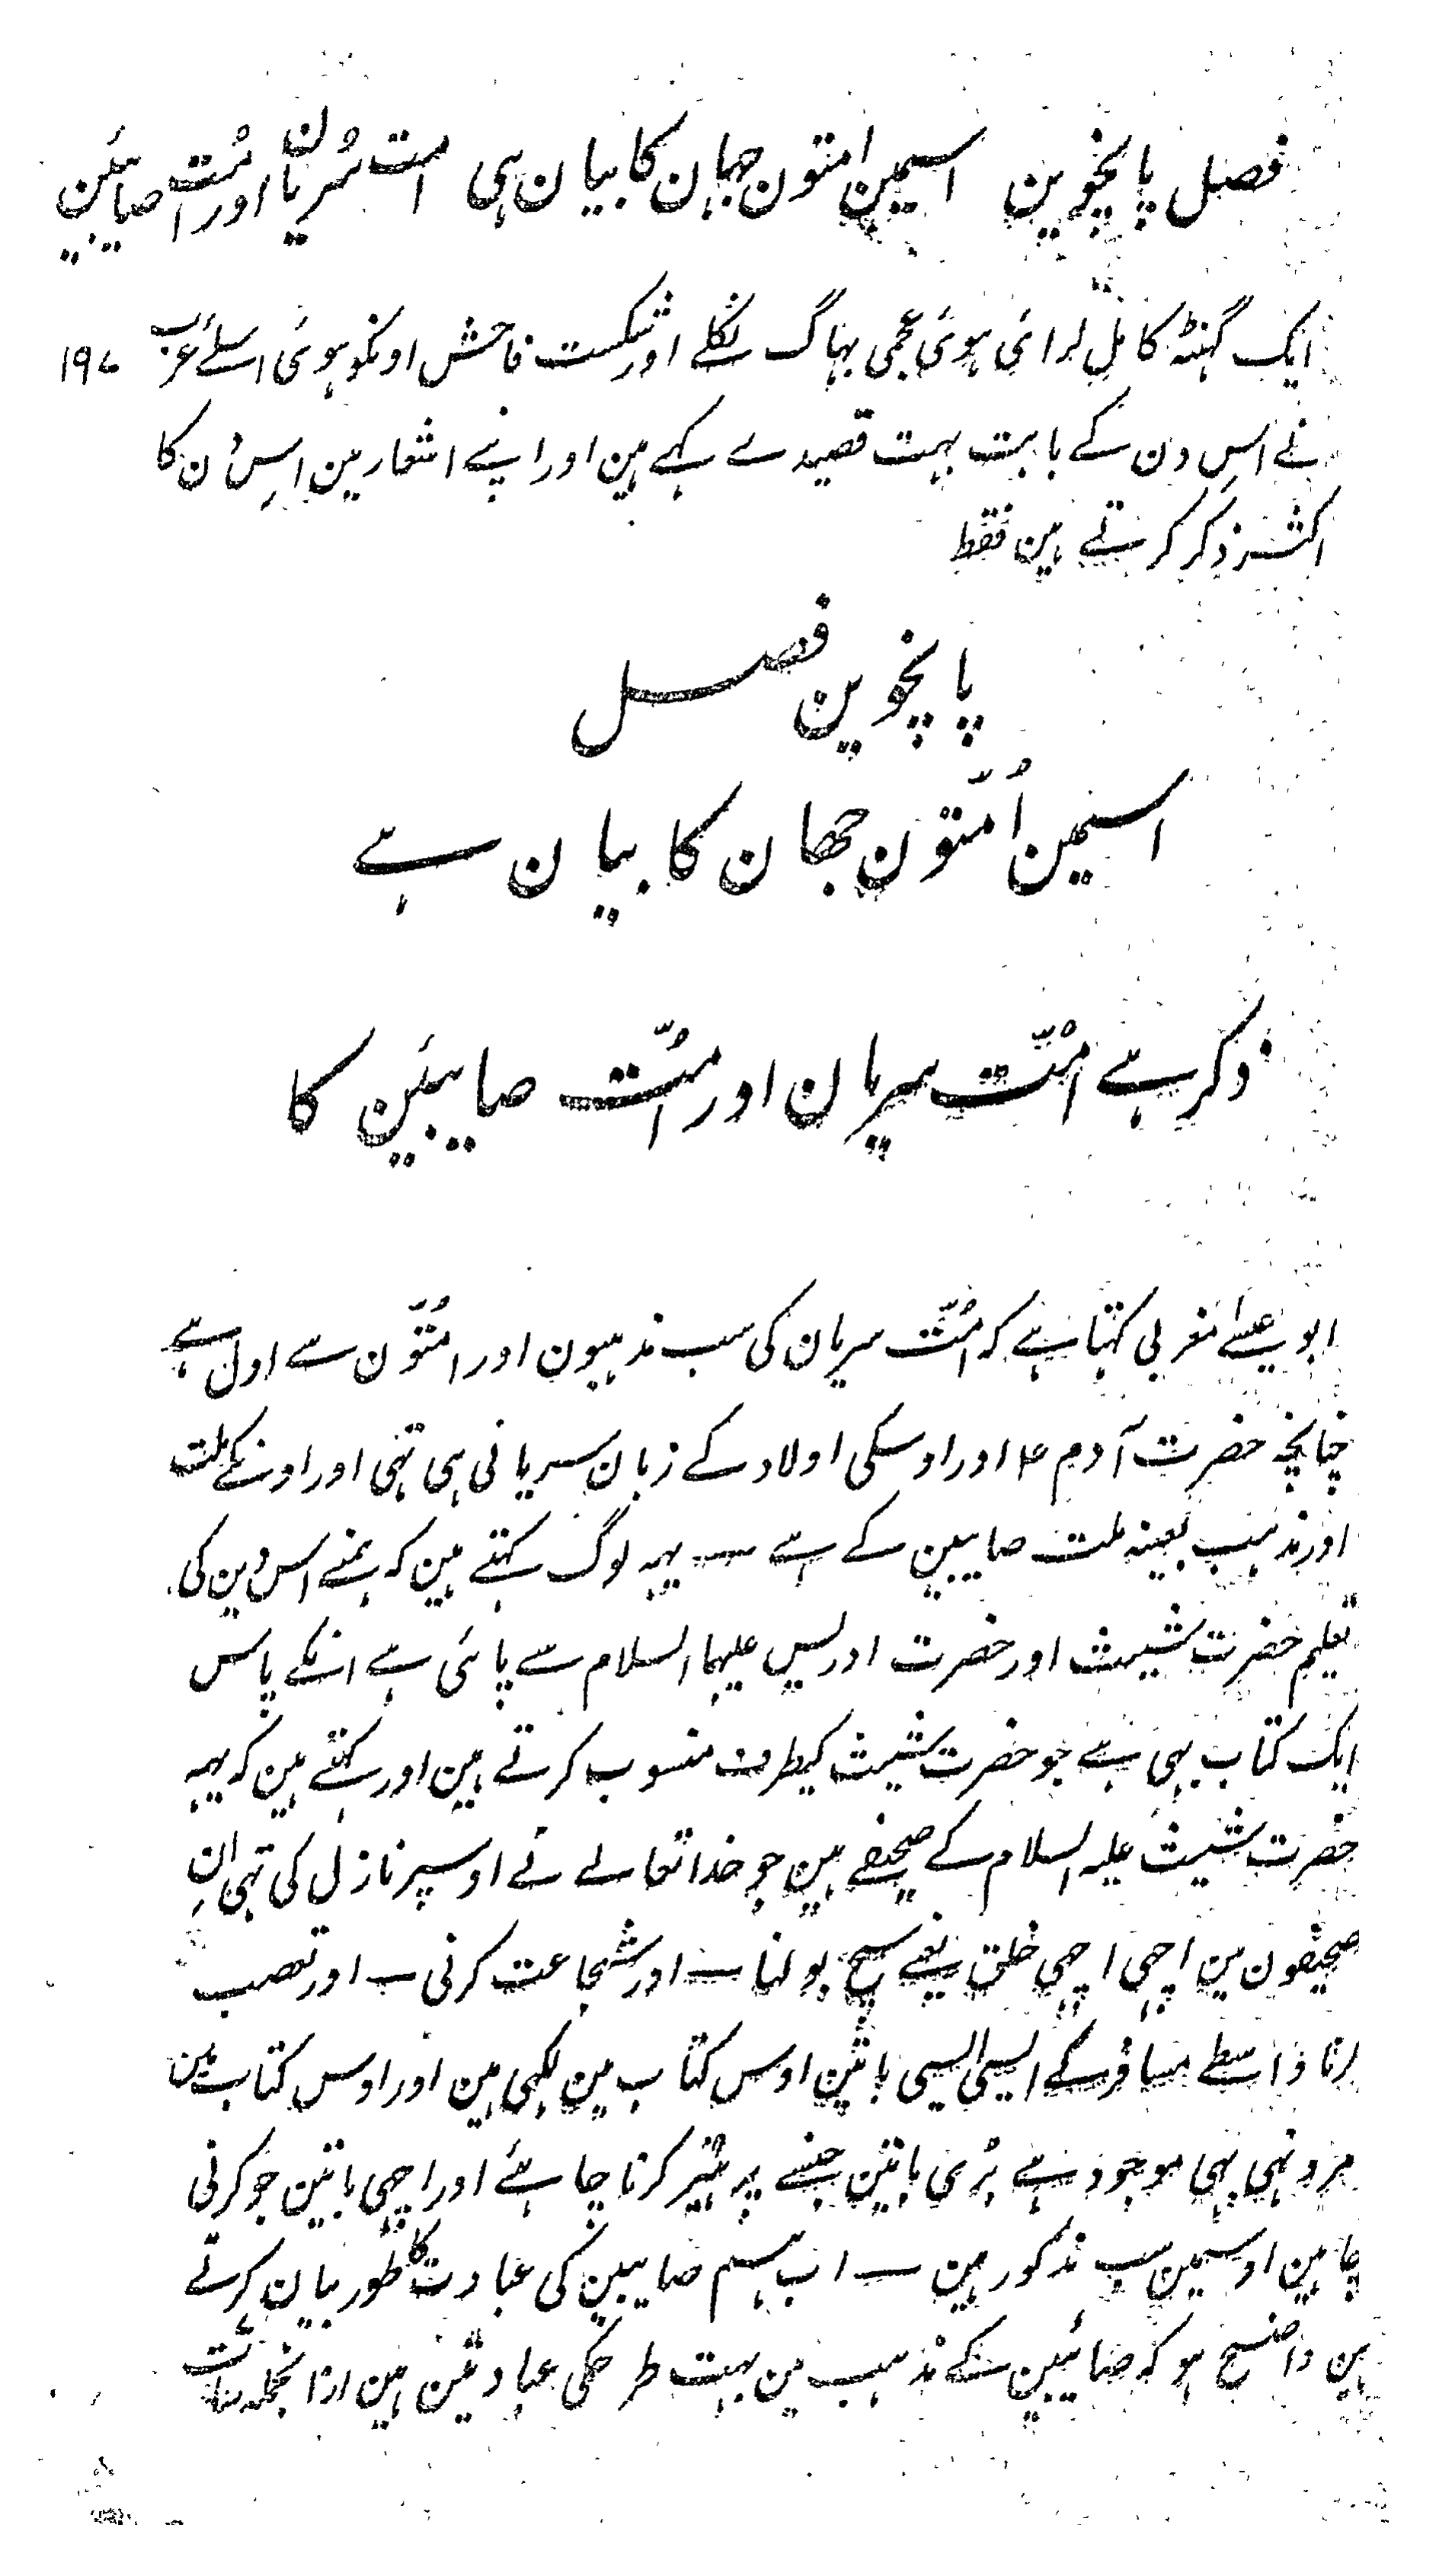 فصل پانچوین اسیمن امتون جہان کا بیان ہی امت سُریان اور امُت صابئین
ایک گہنٹہ کامل لرائی ہوئی عجمی بہاگ نکلے اور شکست فاحش اونکو ہوئی اسلئے عرب ۱۹۷
نے اسِ دن کے بابت بہت قصیدے کہے ہین اور اپنے اشعار مین اسِ دن کا
اکثر ذکر کرتے ہین فقط
پانچوین فصل
اسیمن اُمّتون جہان کا بیان ہے
ذکر ہے امُّت سریان اور امُّت صابیئن کا
ابو عیسے مغربی کہتا ہے کہ امُّت سریان کی سب مذہبون اور امُتّون سے اول ہے
چنانچہ حضرت آدم ۴ اور اوسکی اولاد کے زبان سریانی ہی تہی اور اونکے ملت
اور مذہب بعینہ ملت صابیین کے ہے ــ یہہ لوگ کہتے ہین کہ ہمنے اس دین کی
تعلیم حضرت شیث اور حضرت ادریس علیہما السلام سے پائی ہے انکے پاس
ایک کتاب بہی ہے جو حضرت شیث کیطرف منسوب کرتے ہین اور کہتے ہین کہ یہہ
حضرت شیث علیہ السلام کے صحیفے ہین جو خدا تعالے نے اوسپر نازل کی تہی انِ
صحیفون مین اچہی اچہی خلق یعنے سچ بولنا ــ اور شجاعت کرنی ــ اور تعصب
کرنا واسطے مسافر کے ایسی ایسی باتین اوس کتاب مین لکہی ہین اور اوس کتاب مین
امر و نہی بہی موجود ہے بُری باتین جنسے پرہیز کرنا چاہئے اور اچہی باتین جو کرنی
چاہین اوسیمن سب مذکور ہین ــ اب ہم صابیین کی عبادت کا طور بیان کرتے
ہین واضح ہو کہ صابئین کے مذہب مین بہت طرحکی عبادتین ہین ازانجملہ سات